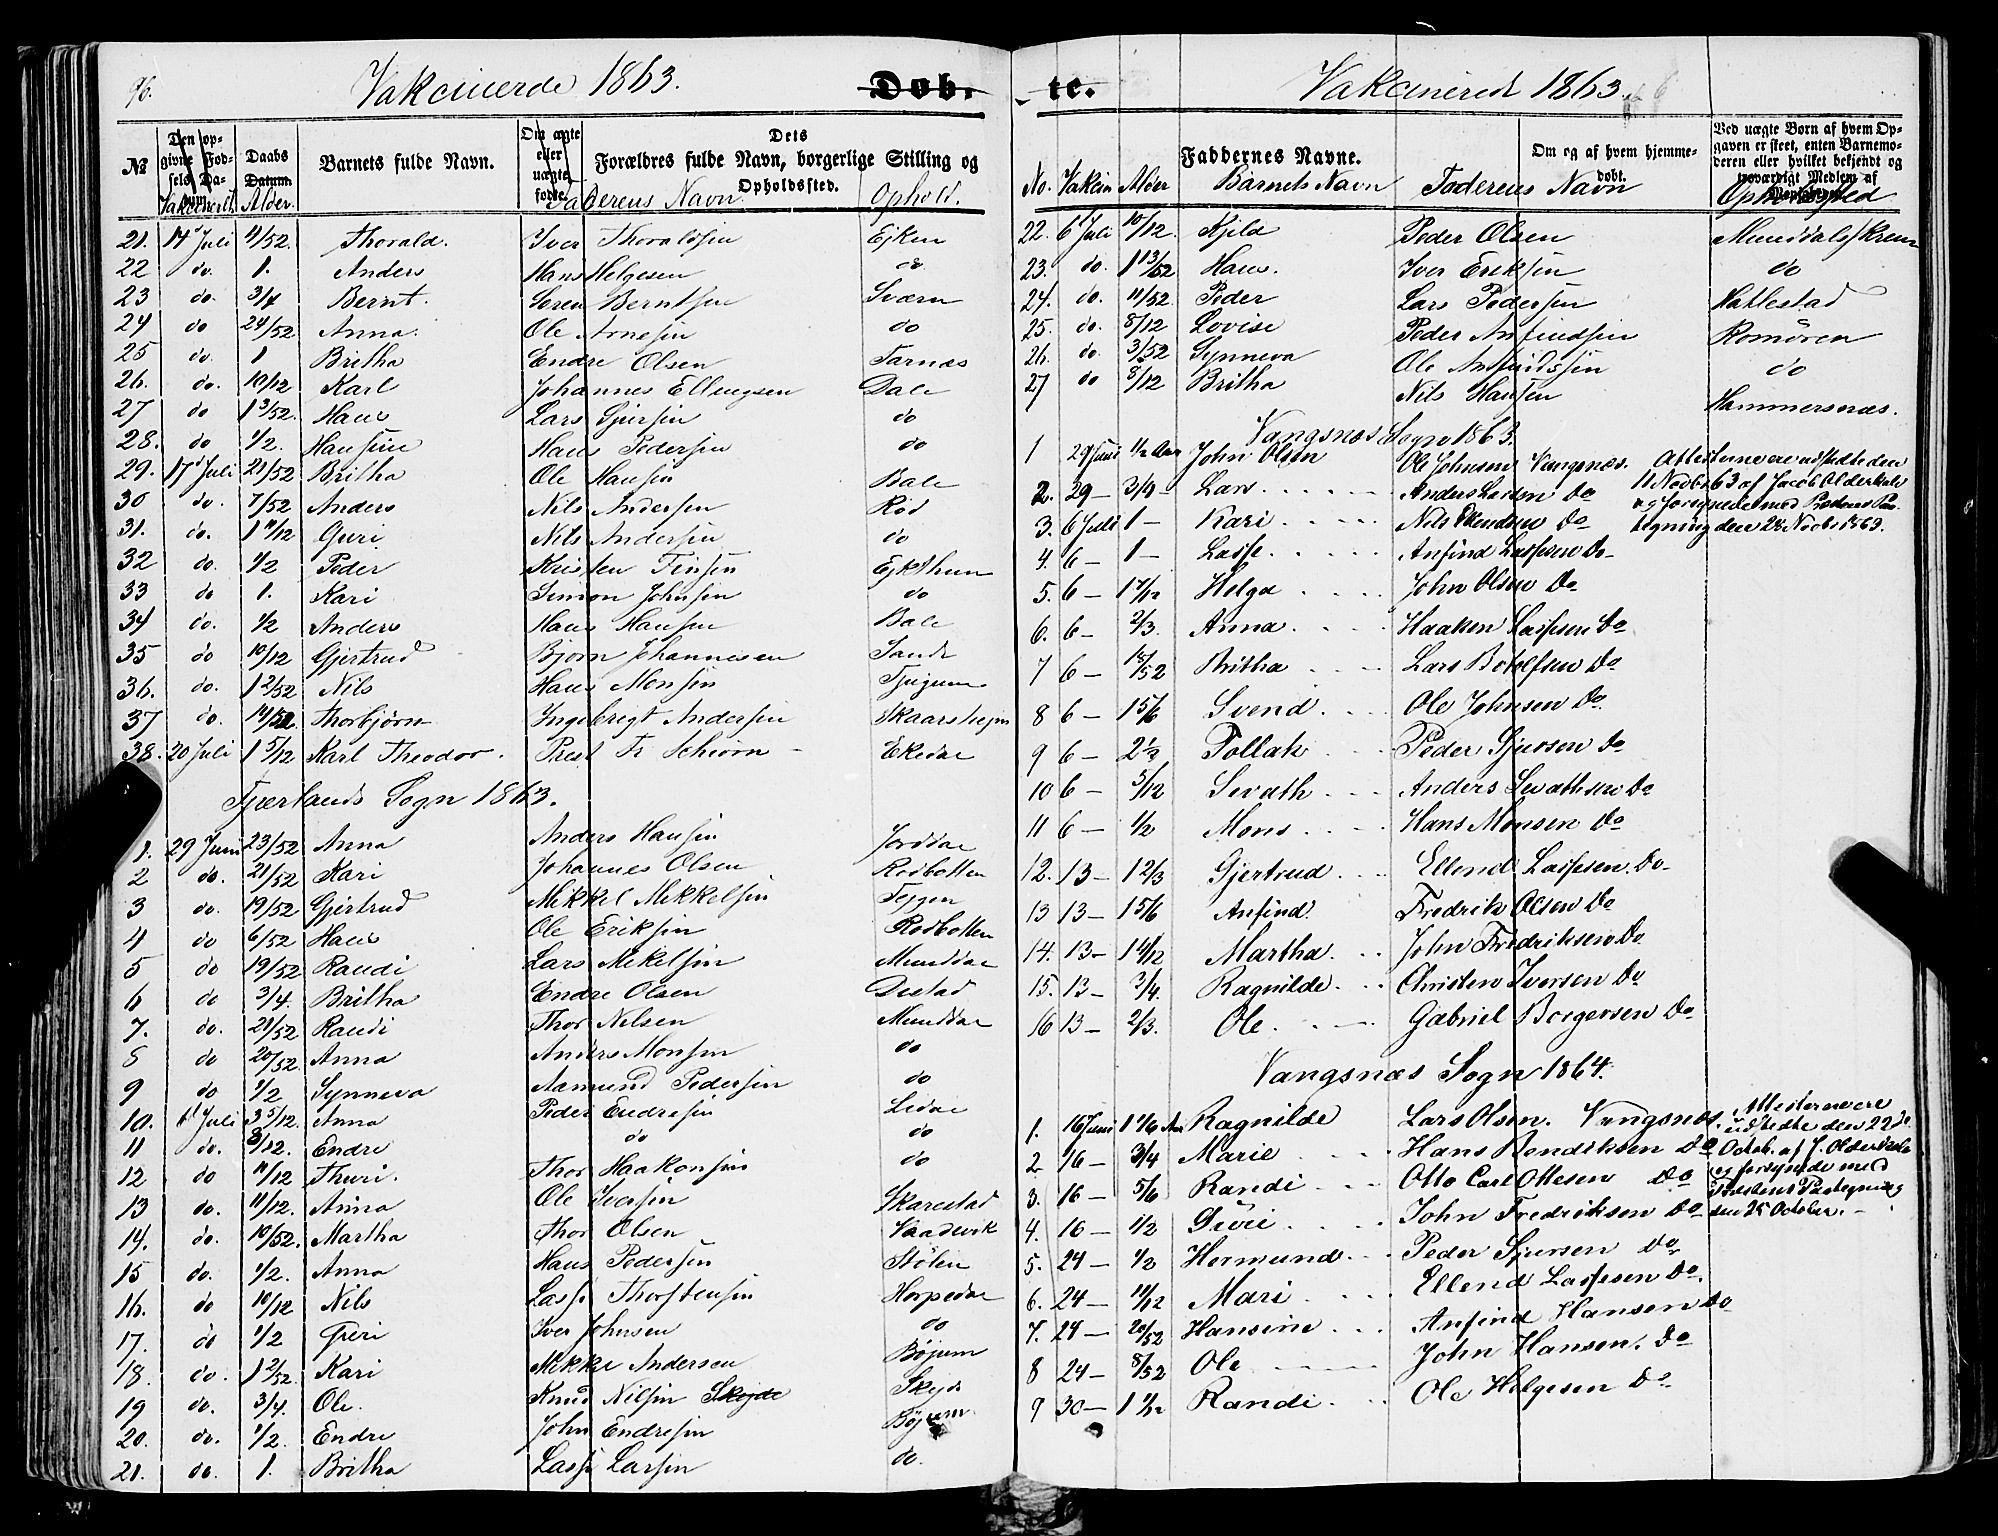 96. Vakcinerde 1863. Døb-
№ Den opgivne Fødsels Datum. Daabs Datum. Barnets fulde Navn. Om ægte eller uægte fødte. Dets Forældres fulde Navn, borgerlige Stilling og Opholdssted.
Vakcinert. Alder. Faderens Navn. Ophold.
21. 14 Juli 4/52. Thorald. Iver Thoraldsen Ejken
22 do. 1. Anders Hans Helgesen do
23 do. 3/4 Bernt. Søren Berntsen Sværn
24 do 24/52 Anna. Ole Arnesen do
25 do. 1 Britha Endre Olsen Tarnæs
26. do. 10/12 Karl Johannes Ellingsen Dale
27 do 1 3/52. Hans Lars Sjursen do
28. do 1/2. Hansine Hans Pedersen do
29. 17 Juli 21/52 Britha Ole Hansen Bale
30 do. 7/52 Anders Nils Andersen Rød
31. do. 1 11/12 Guri Nils Andersen do
32 do. 1/2 Peder Kristen Finsen Ejkthun
33 do 1. Kari Simon Johnsen do
34 do. 1/2 Anders Hans Hansen Bale
35 do 10/12 Gjertrud Bjørn Johannesen Sande
36. do. 1 2/52 Nils Hans Monsen Tjugum
37 do. 14/52. Thorbjørn Ingebrigt Andersen Skaarshejm
38. 20 Juli 1 5/12 Karl Theodor. Prest Fr Schiørn Ekedae
Fjærlands Sogn 1863.
1. 29 Juni 23/52 Anna Anders Hansen Jorddae
2 do. 21/52 Kari Johannes Olsen Rødbotten
3 do. 19/52 Gjertrud Mikkel Mikkelsen Teggen
4 do 6/52 Hans Ole Eriksen Rødbotten
5 do 19/52 Randi Lars Mikelsen Munddae
6 do 3/4. Britha Endre Olsen Distad
7. do. 21/52 Randi Thor Nilsen Munddae
8 do 20/52 Anna Anders Monsen do
9 do 1/2 Synneva Aamund Pedersen do
10. 6 Juli 3 5/12. Anna Peder Endresen Lidae
11 do. 8/12. Endre do do
12 do 11/12 Thuri. Thor Haakonsen do
13 do. 11/12. Anna Ole Iversen Skarestad
14. do. 10/52. Martha Thor Olsen Vaadevik
15 do. 1/2. Anna Hans Pedersen Stølen
16. do 10/12 Nils Lasse Thorstensen Horpedae
17. do 1/2 Guri Iver Johnsen do
18. do. 1 2/52. Kari Mikkel Andersen Bøjum
19 do. 3/4. Ole. Knud Nilsen Skejde Skejde
20. do. 1/2. Endre John Endresen Bøjum
21. do. 1. Britha Lasse Larsen do.
te. Vakcineret 1863.
Faddernes Navne. Om og af hvem hjemmedøbt. Ved uægte Børn af hvem Opgaven er skeet, enten Barnemoderen eller hvilket bekjendt og troværdigt Medlem af Menigheden
No. Vakcin Alder Barnets Navn Faderens Navn Opholdssted
22. 6 Juli 10/12. Kjeld Peder Olsen Munddals
23. do. 1 13/52 Hans. Iver Eriksen do
24. do. 11/52. Peder Lars Pedersen Hatlestad
25. do. 8/12 Lovise Peder Anfindsen Romøren
26. do 3/52 Synneva Ole Anfindsen do
27 do 8/12 Britha Nils Hansen Hammersnæs.
Vangsnæs Sogn 1863.
1 29 Juni 1/2 Aar John Olsen Ole Johnsen Vangsnæs. Attesterne ere udstedte den
2. 29 - 3/4 - Lars Anders Larsen Do 11 Novbr 63 af Jacob Olderdale
3. 6 Juli 1 - Kari Nils Do og forsynede med Prestens Paa
tegning den 28 Novbr 1863.
4. 6 - 1 - Lasse Anfind Lassesen Do
5. 6 - 1 7/12 Helga John Olsen Do
6. 6 - 2/3. Anna Haaken Lassesen Do
7 6 - 18/52 Britha Lars Botolfsen Do
8 6 - 1 5/6 Svend Ole Johnsen Do
9 6 - 2 1/3 Tollak Peder Sjursen Do
10 6 - 5/12 Sevath Anders Sevathsen Do
11 6 - 1/2 Mons Hans Monsen Do
12. 13 - 1 2/3 Gjertrud Ellend Lassesen. Do
13 13 - 1 5/6 Anfind Fredrik Olsen Do
14. 13 - 1 4/12 Martha John Fredriksen Do
15. 13 - 3/4. Ragnilde Christen Iversen Do
16 13 - 2/3. Ole Gabriel Borgersen Do
Vangsnæs Sogn 1864.
1. 16 Juni 1 1/6 Aar Ragnilde Lars Olsen. Vangsnæs. Attesterne ere
udstedte den 22de
2 16 - 3/4 Marie Hans Bendiksen Do Octob. af J. Olderdale
3. 16 - 5/6 Randi Otto Carl Ottesen Do og forsynede med
Prestens Paategning
4. 16 - 1/2 John Fredriksen Do den 25 October.
5. 24 - 1/2 Hermund Peder Sjursen Do
6. 24 - 11/12 Mari Ellend Lassesen Do.
7. 24 - 20/52 Hansine Anfind Hansen Do
8 24 - 8/52 Ole John Hansen. Do
9 30 - 1 1/12 Randi Ole Helgesen Do